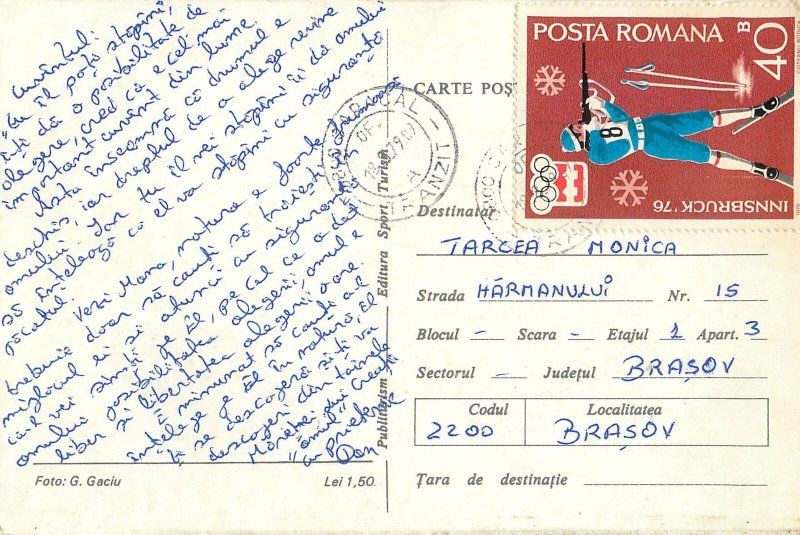 cuvîntul:
"tu îl poți stăpîni",
îți dă o posibilitate de
alegere, cred că e cel mai
important cuvînt din lume.
Asta înseamnă că drumul e
deschis, iar dreptul de a alege revine
omului. Iar tu îl vei stăpîni îi dă omului
să înțeleagă că el va stăpîni cu siguranță
păcatul.
Vezi Mona, natura e foarte frumoasă
trebuie doar să cauți să trăiești în
mijlocul ei și atunci cu siguranță
că-l vei simți pe El, pe cel ce a dat
omului posibilitatea alegerii, omul e
liber și libertatea alegerii o are.
E minunat să cauți a-l
înțelege pe El în natură, El
ți se descoperă și-ți va
descoperi din tainele
Măreției lui Creații
"omul"
cu Prietenie
Dan
Foto: G. Gaciu
Lei 1,50.
Publiturism
Editura Sport, Turism
CARTE POȘ
POSTA ROMANA
40 B
8
INNSBRUCK '76
TRANZIT
Destinatar
TARCEA MONICA
Strada HĂRMANULUI Nr. 15
Blocul – Scara – Etajul 1 Apart. 3
Sectorul – Județul BRAȘOV
Codul Localitatea
2200 BRAȘOV
Țara de destinație